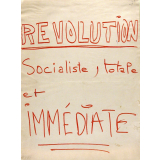 REVOLUTION
Socialiste, totale
et
IMMÉDIATE